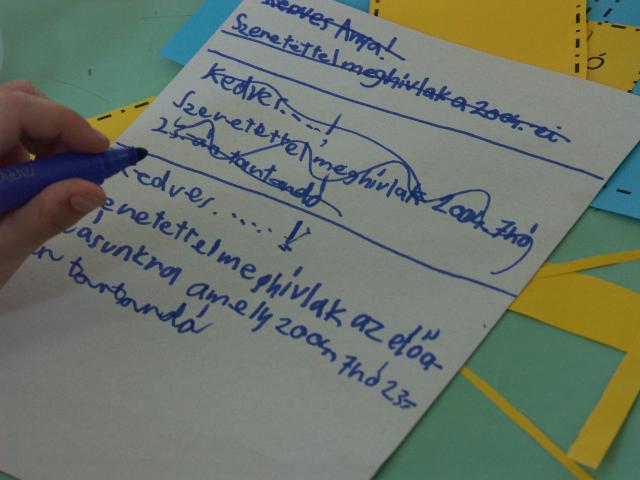 Kedves Anya!
Szeretettel meghívlak a 2004. ei
Kedves.....!
Szeretettel meghívlak 2004. 7hó
23-án tartandó
Kedves.....!
Szeretettel meghívlak az előa-
dásunkra amely 2004 7hó 23-
án tartandó